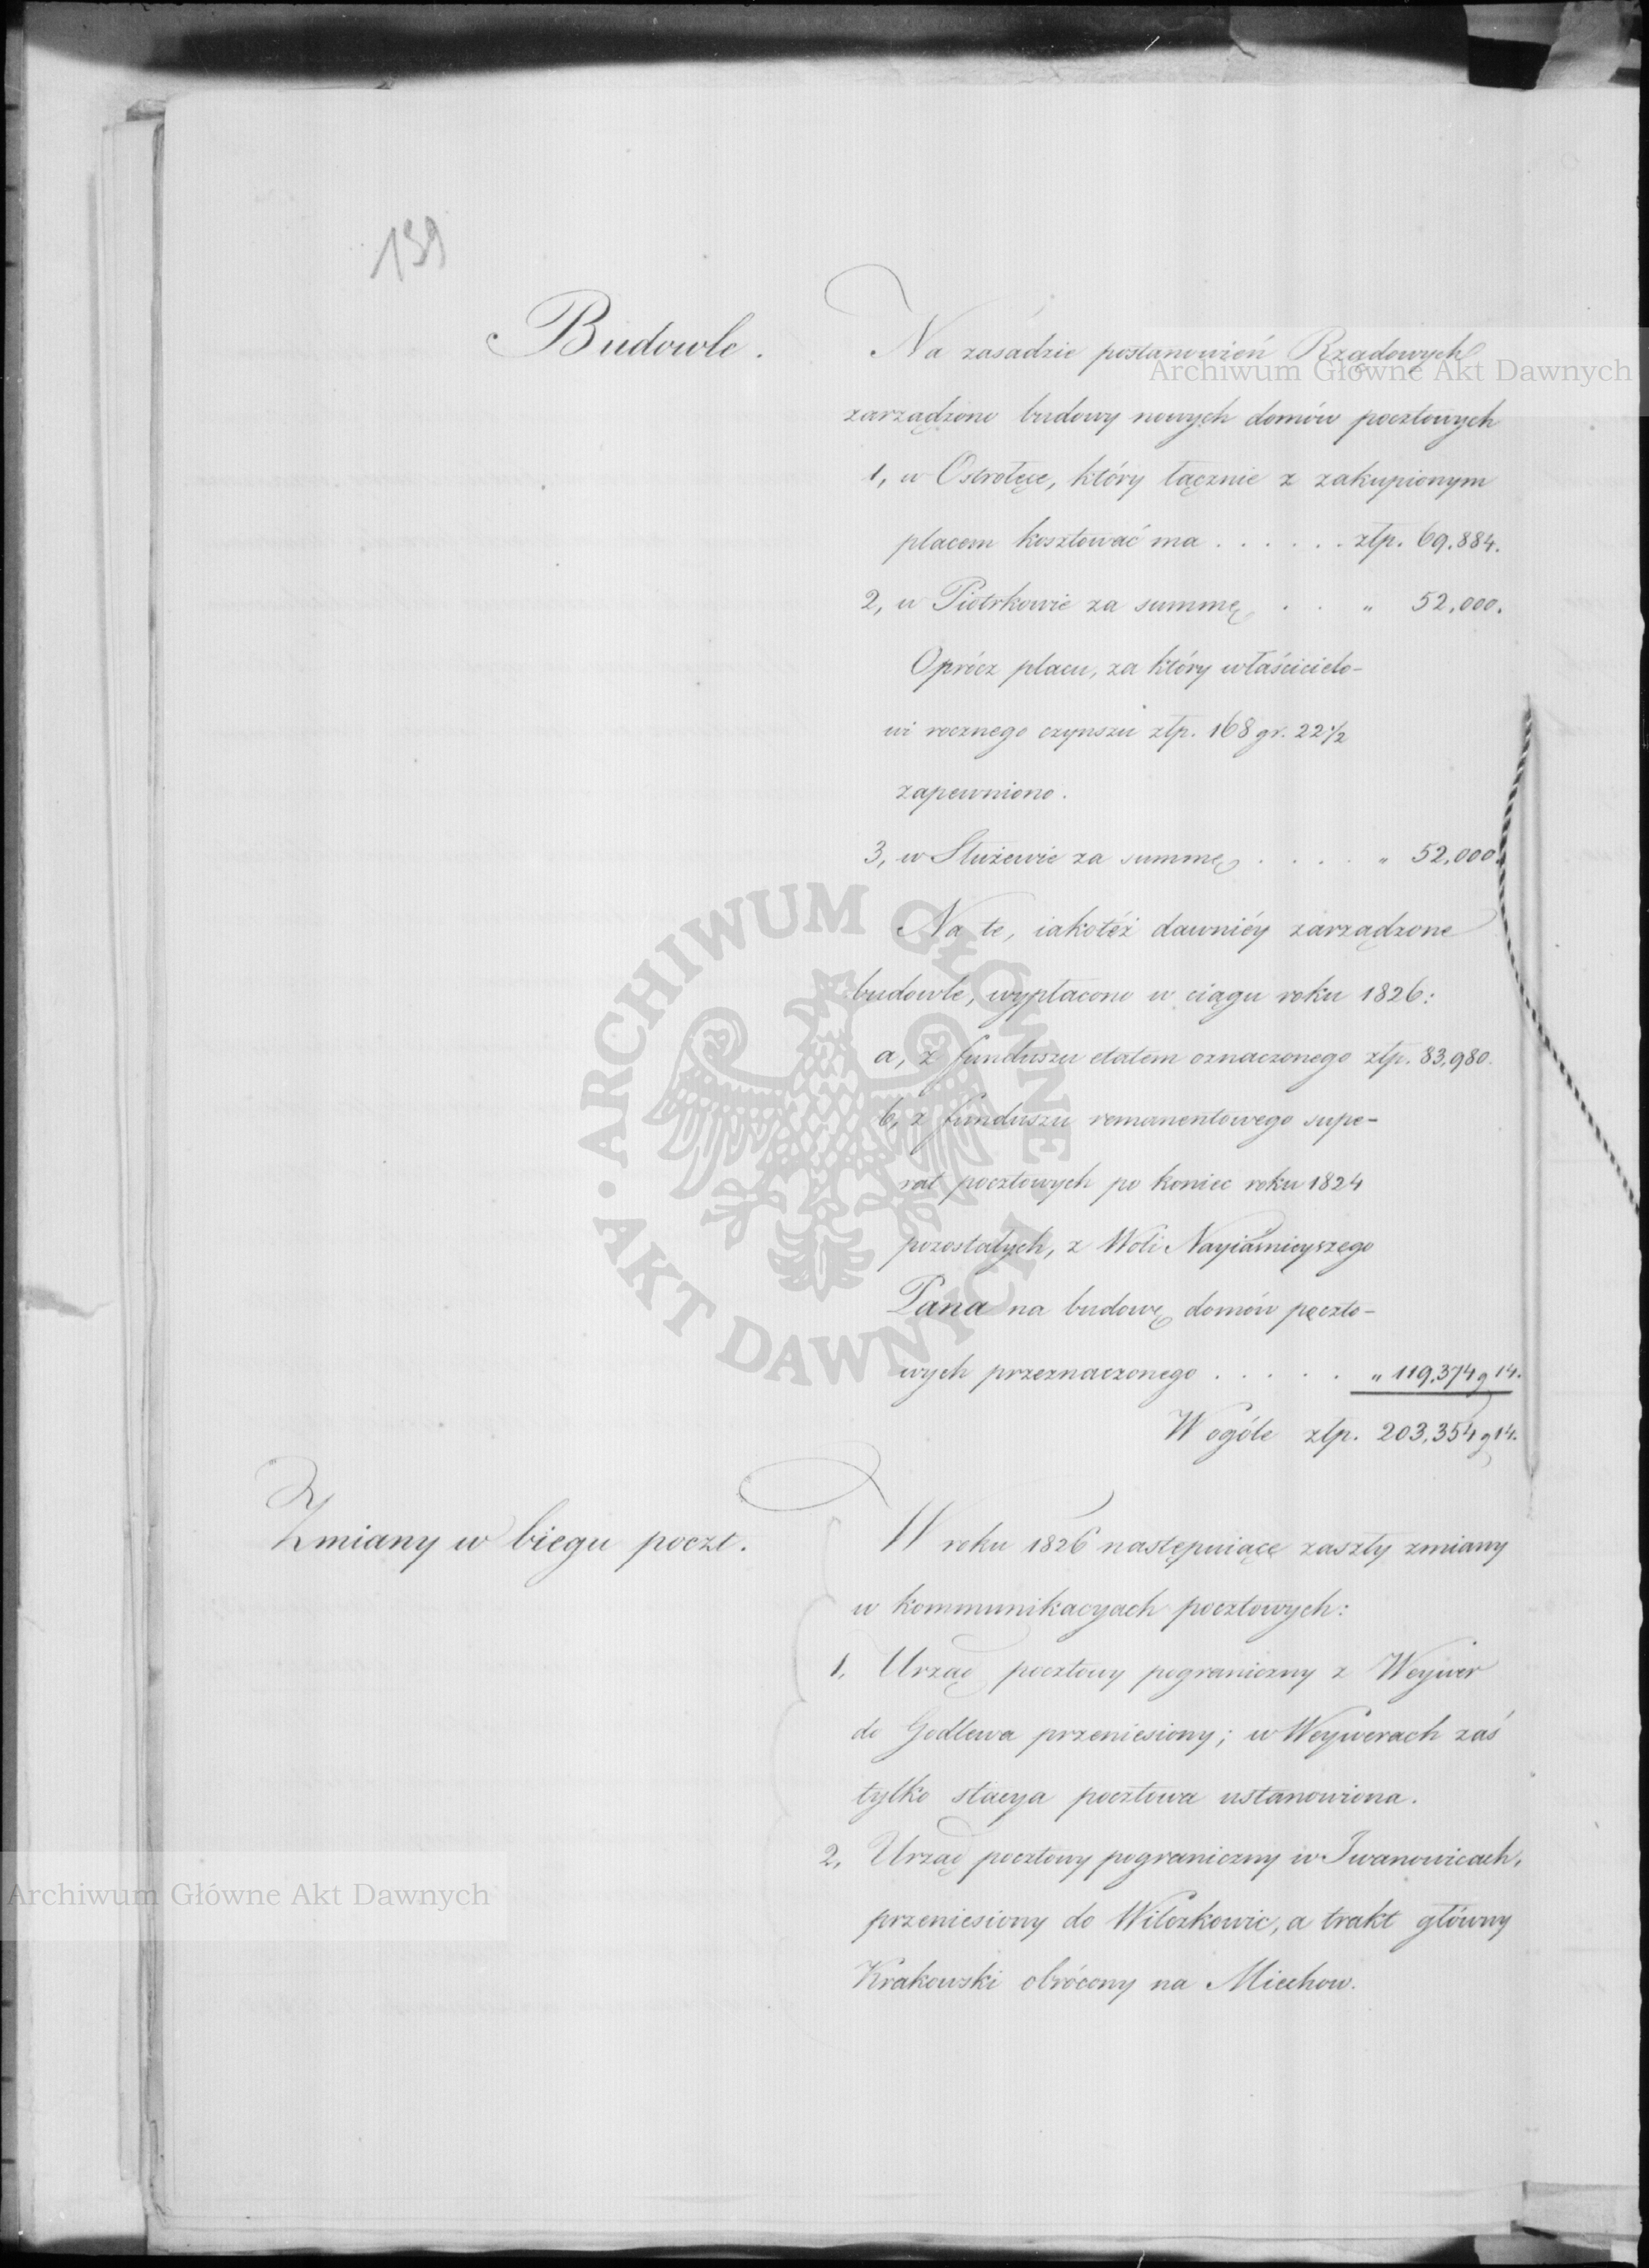 139
Budowle.
Na zasadzie postanowień Rządowych
zarządzono budowy nowych domów pocztowych
1, w Ostrołęce, który łącznie z zakupionym
placem kosztować ma . . . . . . złp. 69.884.
2, w Piotrkowie za summę . . „ 52,000.
Oprócz placu, za który właścicielo-
wi rocznego czynszu złp. 168 gr. 22 1/2
zapewniono.
3, w Służewie za summę . . . . „ 52,000.
Na te, iakotéż dawniéy zarządzone
budowle, wypłacono w ciągu roku 1826:
a, z funduszu etatem oznaczonego złp. 83,980.
b, z funduszu remanentowego supe-
rat pocztowych po koniec roku 1824
pozostałych, z Woli Nayiaśnieyszego
Pana na budowę domów poczto-
wych przeznaczonego . . . . . „ 119,374 g 14.
W ogóle złp. 203,354 g 14.
Zmiany w biegu poczt.
W roku 1826 następuiące zaszły zmiany
w kommunikacyach pocztowych:
1, Urząd pocztowy pograniczny z Weywer
do Godlewa przeniesiony; w Weywerach zaś
tylko stacya pocztowa ustanowiona.
2, Urząd pocztowy pograniczny w Iwanowicach,
przeniesiony do Wilczkowic, a trakt główny
Krakowski obrócony na Miechow.
Archiwum Główne Akt Dawnych
ARCHIWUM GŁÓWNE AKT DAWNYCH
Archiwum Główne Akt Dawnych